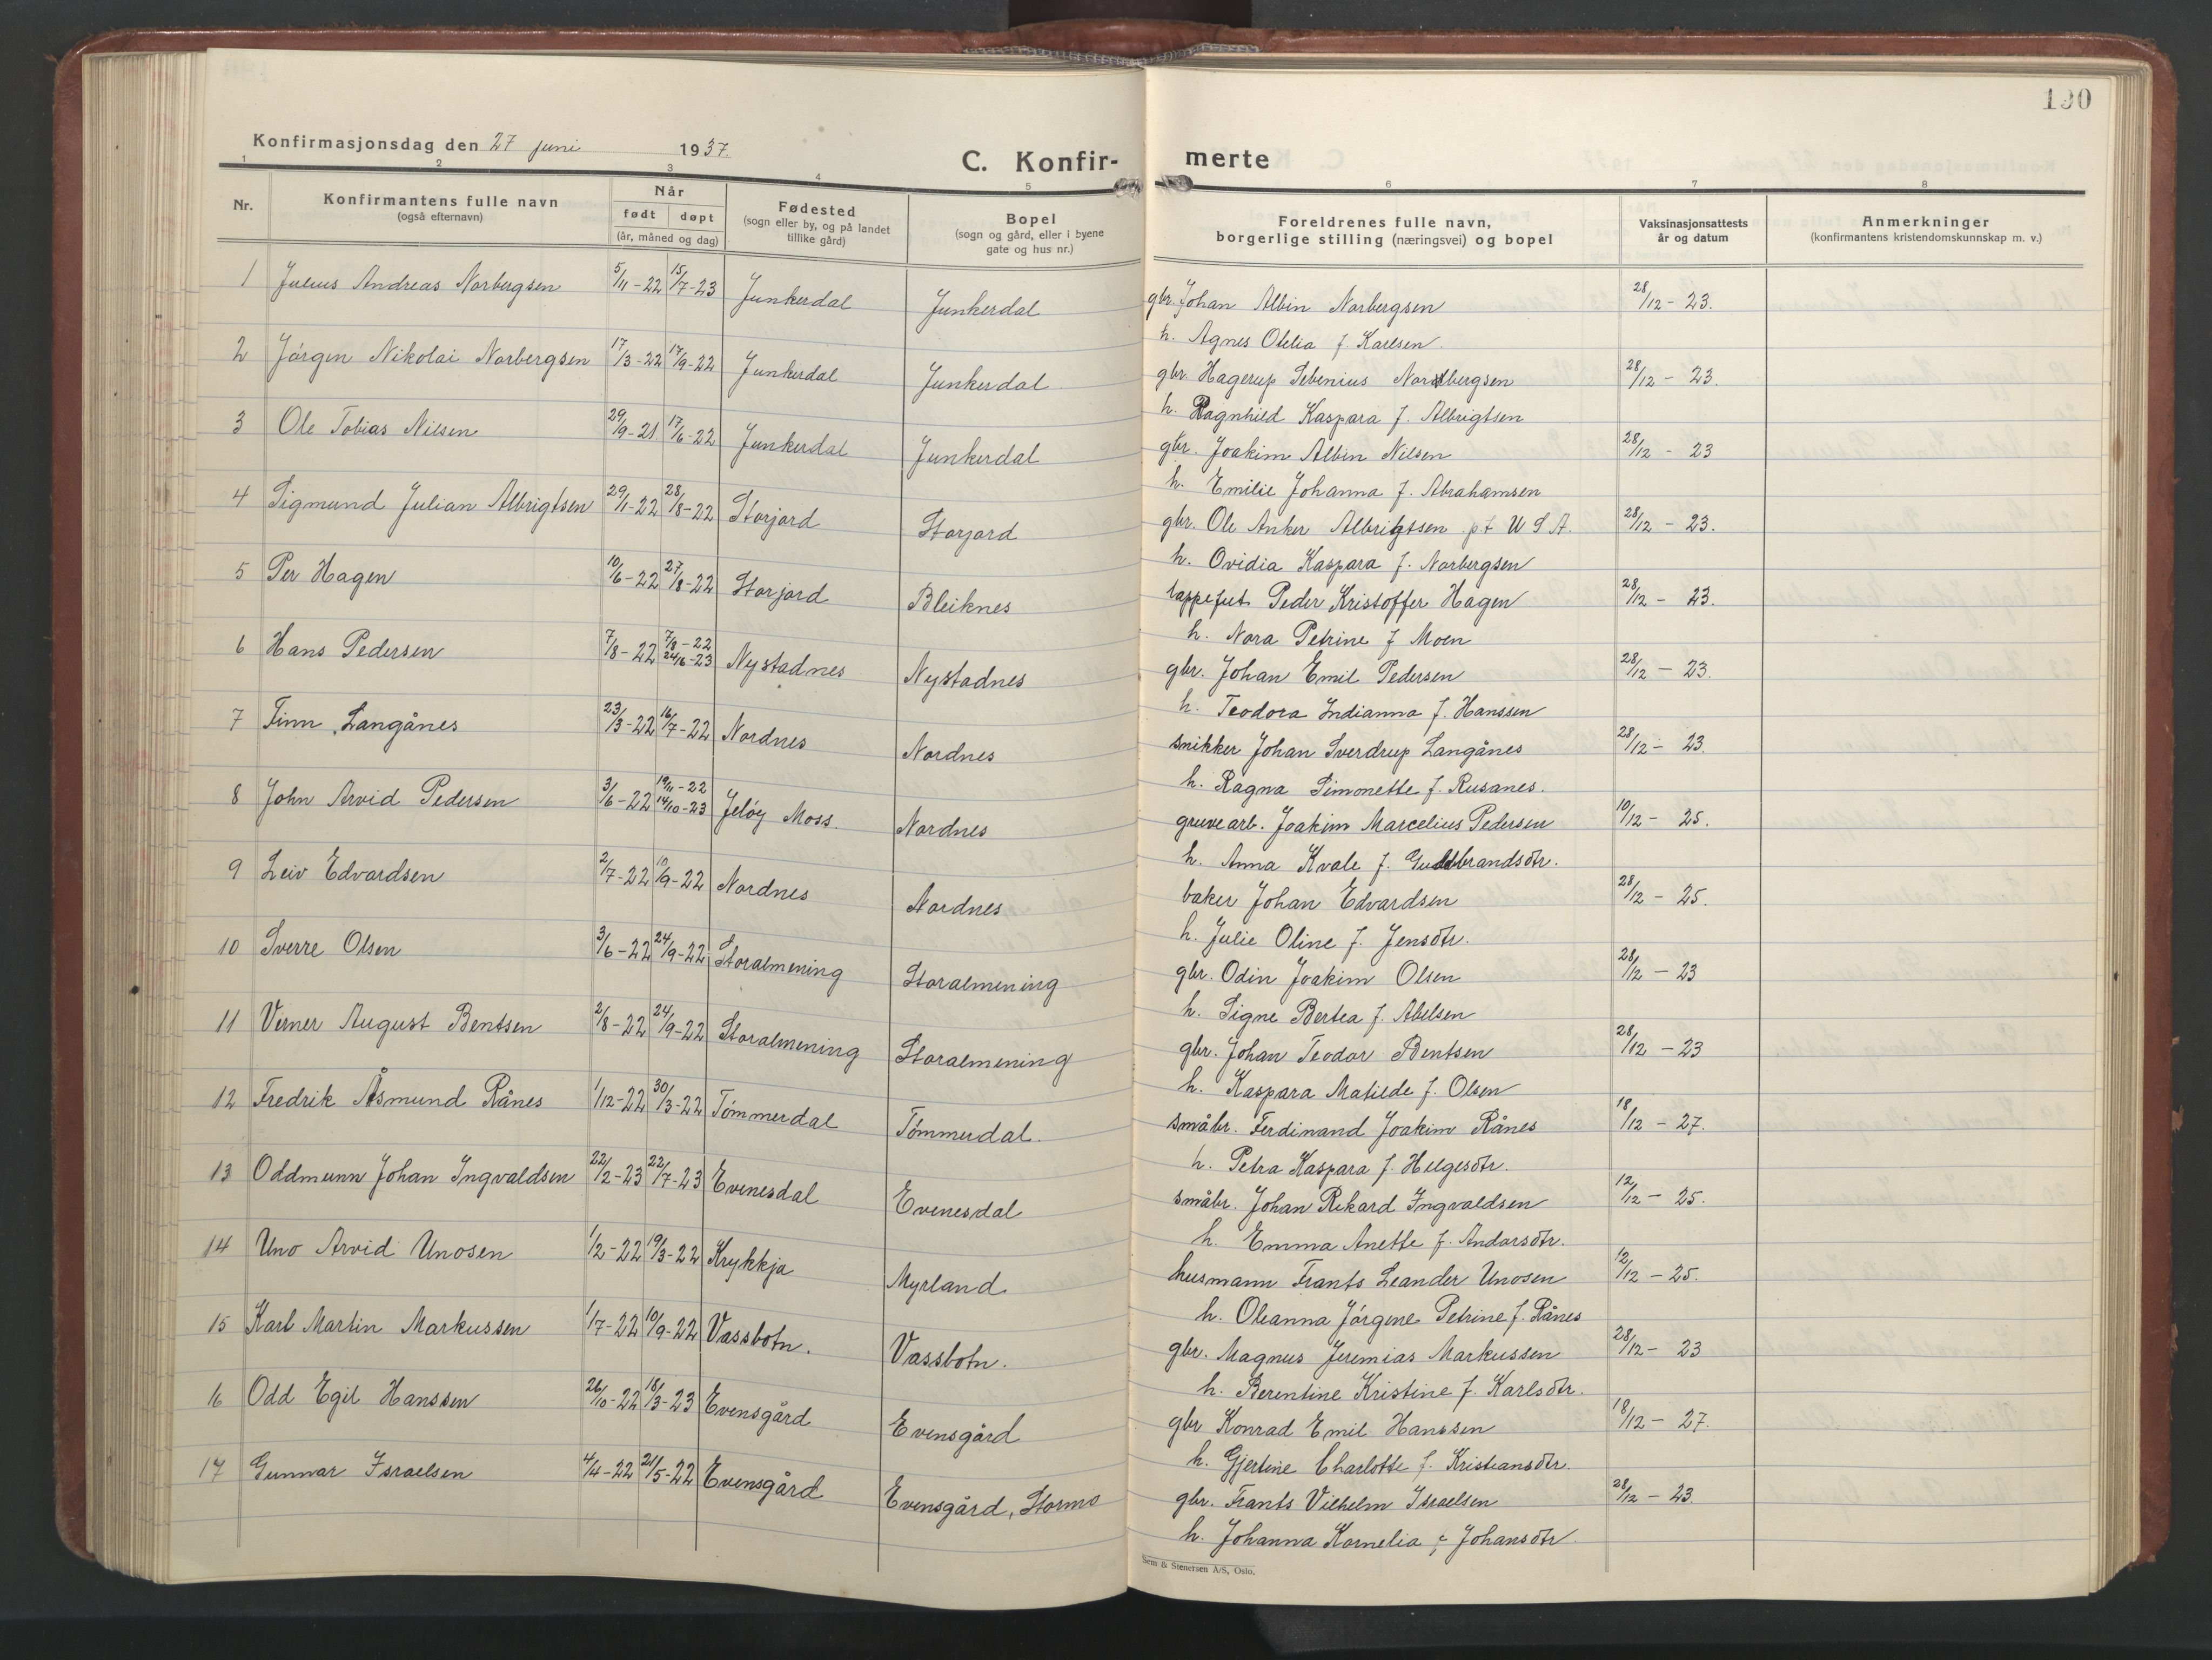 190
Konfirmasjonsdag den 27 juni 1937
C. Konfir- merte
1 2 3 4 5 6 7 8
Nr.
Konfirmantens fulle navn
(også efternavn)
Når
født døpt
(år, måned og dag)
Fødested
(sogn eller by, og på landet
tillike gård)
Bopel
(sogn og gård, eller i byene
gate og hus nr.)
Foreldrenes fulle navn,
borgerlige stilling (næringsvei) og bopel
Vaksinasjonsattests
år og datum
Anmerkninger
(konfirmantens kristendomskunnskap m. v.)
1 Julius Andreas Norbergsen 5/11-22 15/7-23 Junkerdal Junkerdal gbr. Johan Albin Norbergsen 28/12-23.
h. Agnes Otelia f. Karlsen
2 Jörgen Nikolai Norbergsen 17/3-22 17/9-22 Junkerdal Junkerdal gbr. Hagerup Sebenius Nordbergsen 28/12-23.
h. Ragnhild Kaspara f. Albrigtsen
3 Ole Tobias Nilsen 29/9-21 17/6-22 Junkerdal Junkerdal gbr. Joakim Albin Nilsen 28/12-23
h. Emilie Johanna f. Abrahamsen
4 Sigmund Julian Albrigtsen 29/1-22 28/8-22 Storjord Storjord gbr. Ole Anker Albrigtsen pt U S A. 28/12-23.
h. Ovidia Kaspara f. Norbergsen
5 Per Hagen 10/6-22 27/8-22 Storjord Bleiknes Peder Kristoffer Hagen 28/12-23.
h. Nora Petrine f Moen
6 Hans Pedersen 7/8-22 7/8-22 24/6-23 Nystadnes Nystadnes gbr. Johan Emil Pedersen 28/12-23.
h. Teodora Indianna f. Hanssen
7 Finn Langånes 23/3-22 16/7-22 Nordnes Nordnes snikker Johan Sverdrup Langånes 28/12-23.
h. Ragna Simonette f. Rusanes.
8 John Arvid Pedersen 3/6-22 19/11-22 14/10-23 Jelöy Moss. Nordnes gruvearb. Joakim Marcelius Pedersen 10/12-25.
h. Anna Kvale f. Guldbrandsdtr.
9 Leiv Edvardsen 2/7-22 10/9-22 Nordnes Nordnes baker Johan Edvardsen 28/12-25.
h. Julie Oline f. Jensdtr.
10 Sverre Olsen 3/6-22 24/9-22 Storalmening Storalmening gbr. Odin Joakim Olsen 28/12-23
h. Signe Bertea f. Abelsen
11 Verner August Bentsen 2/8-22 24/9-22 Storalmening Storalmening gbr. Johan Teodor Bentsen 28/12-23
h. Kaspara Matilde f. Olsen
12 Fredrik Åsmund Rånes 1/12-22 30/3-22 Tömmerdal Tömmerdal. småbr. Ferdinand Joakim Rånes 18/12-27.
h. Petra Kaspara f. Helgesdtr.
13 Oddmunn Johan Ingvaldsen 22/2-23 22/7-23 Evenesdal Evenesdal småbr. Johan Rikard Ingvaldsen 12/12-25.
h. Emma Anette f. Andorsdtr.
14 Uno Arvid Unosen 1/2-22 19/3-22 Krykkja Myrland husmann Frants Leander Unosen 12/12-25.
h. Oleanna Jörgine Petrine f. Rånes
15 Karl Martin Markussen 1/7-22 10/9-22 Vassbotn. Vassbotn. gbr. Magnus Jeremias Markussen 28/12-23
h. Berentine Kristine f. Karlsdtr.
16 Odd Egil Hanssen 26/10-22 18/3-23 Evensgård Evensgård gbr Konrad Emil Hanssen 18/12-27.
h. Gjertine Charlotte f. Kristiansdtr.
17 Gunnar Israelsen 4/4-22 21/5-22 Evensgård Evensgård, Stormo gbr. Frants Vilhelm Israelsen 28/12-23.
h. Johanna Kornelia f Johansdtr.
Sem & Stenersen A/S, Oslo.